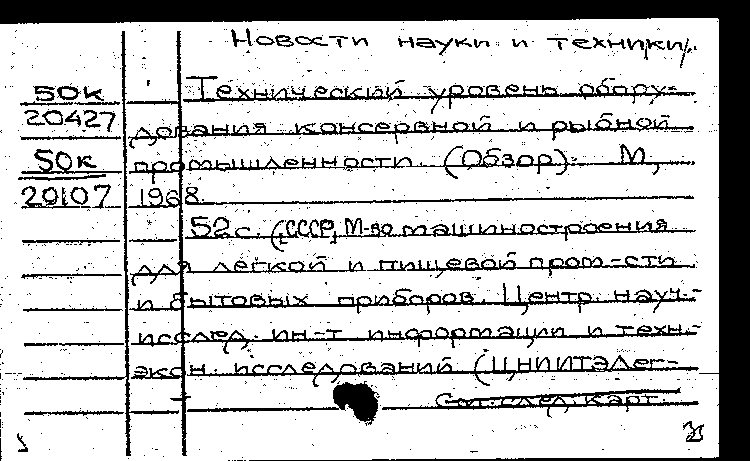 Новости науки и техники.
50к Технический уровень обору-
20427 дования консервной и рыбной
50к промышленности. (Обзор). М.,
20107 1968.
52с. (СССР, М-во машиностроения
для легкой и пищевой пром-сти
и бытовых приборов. Центр. науч.-
исслед. ин-т информации и техн.-
экон. исследований (ЦНИИТЭЛег-
См. след. карт.